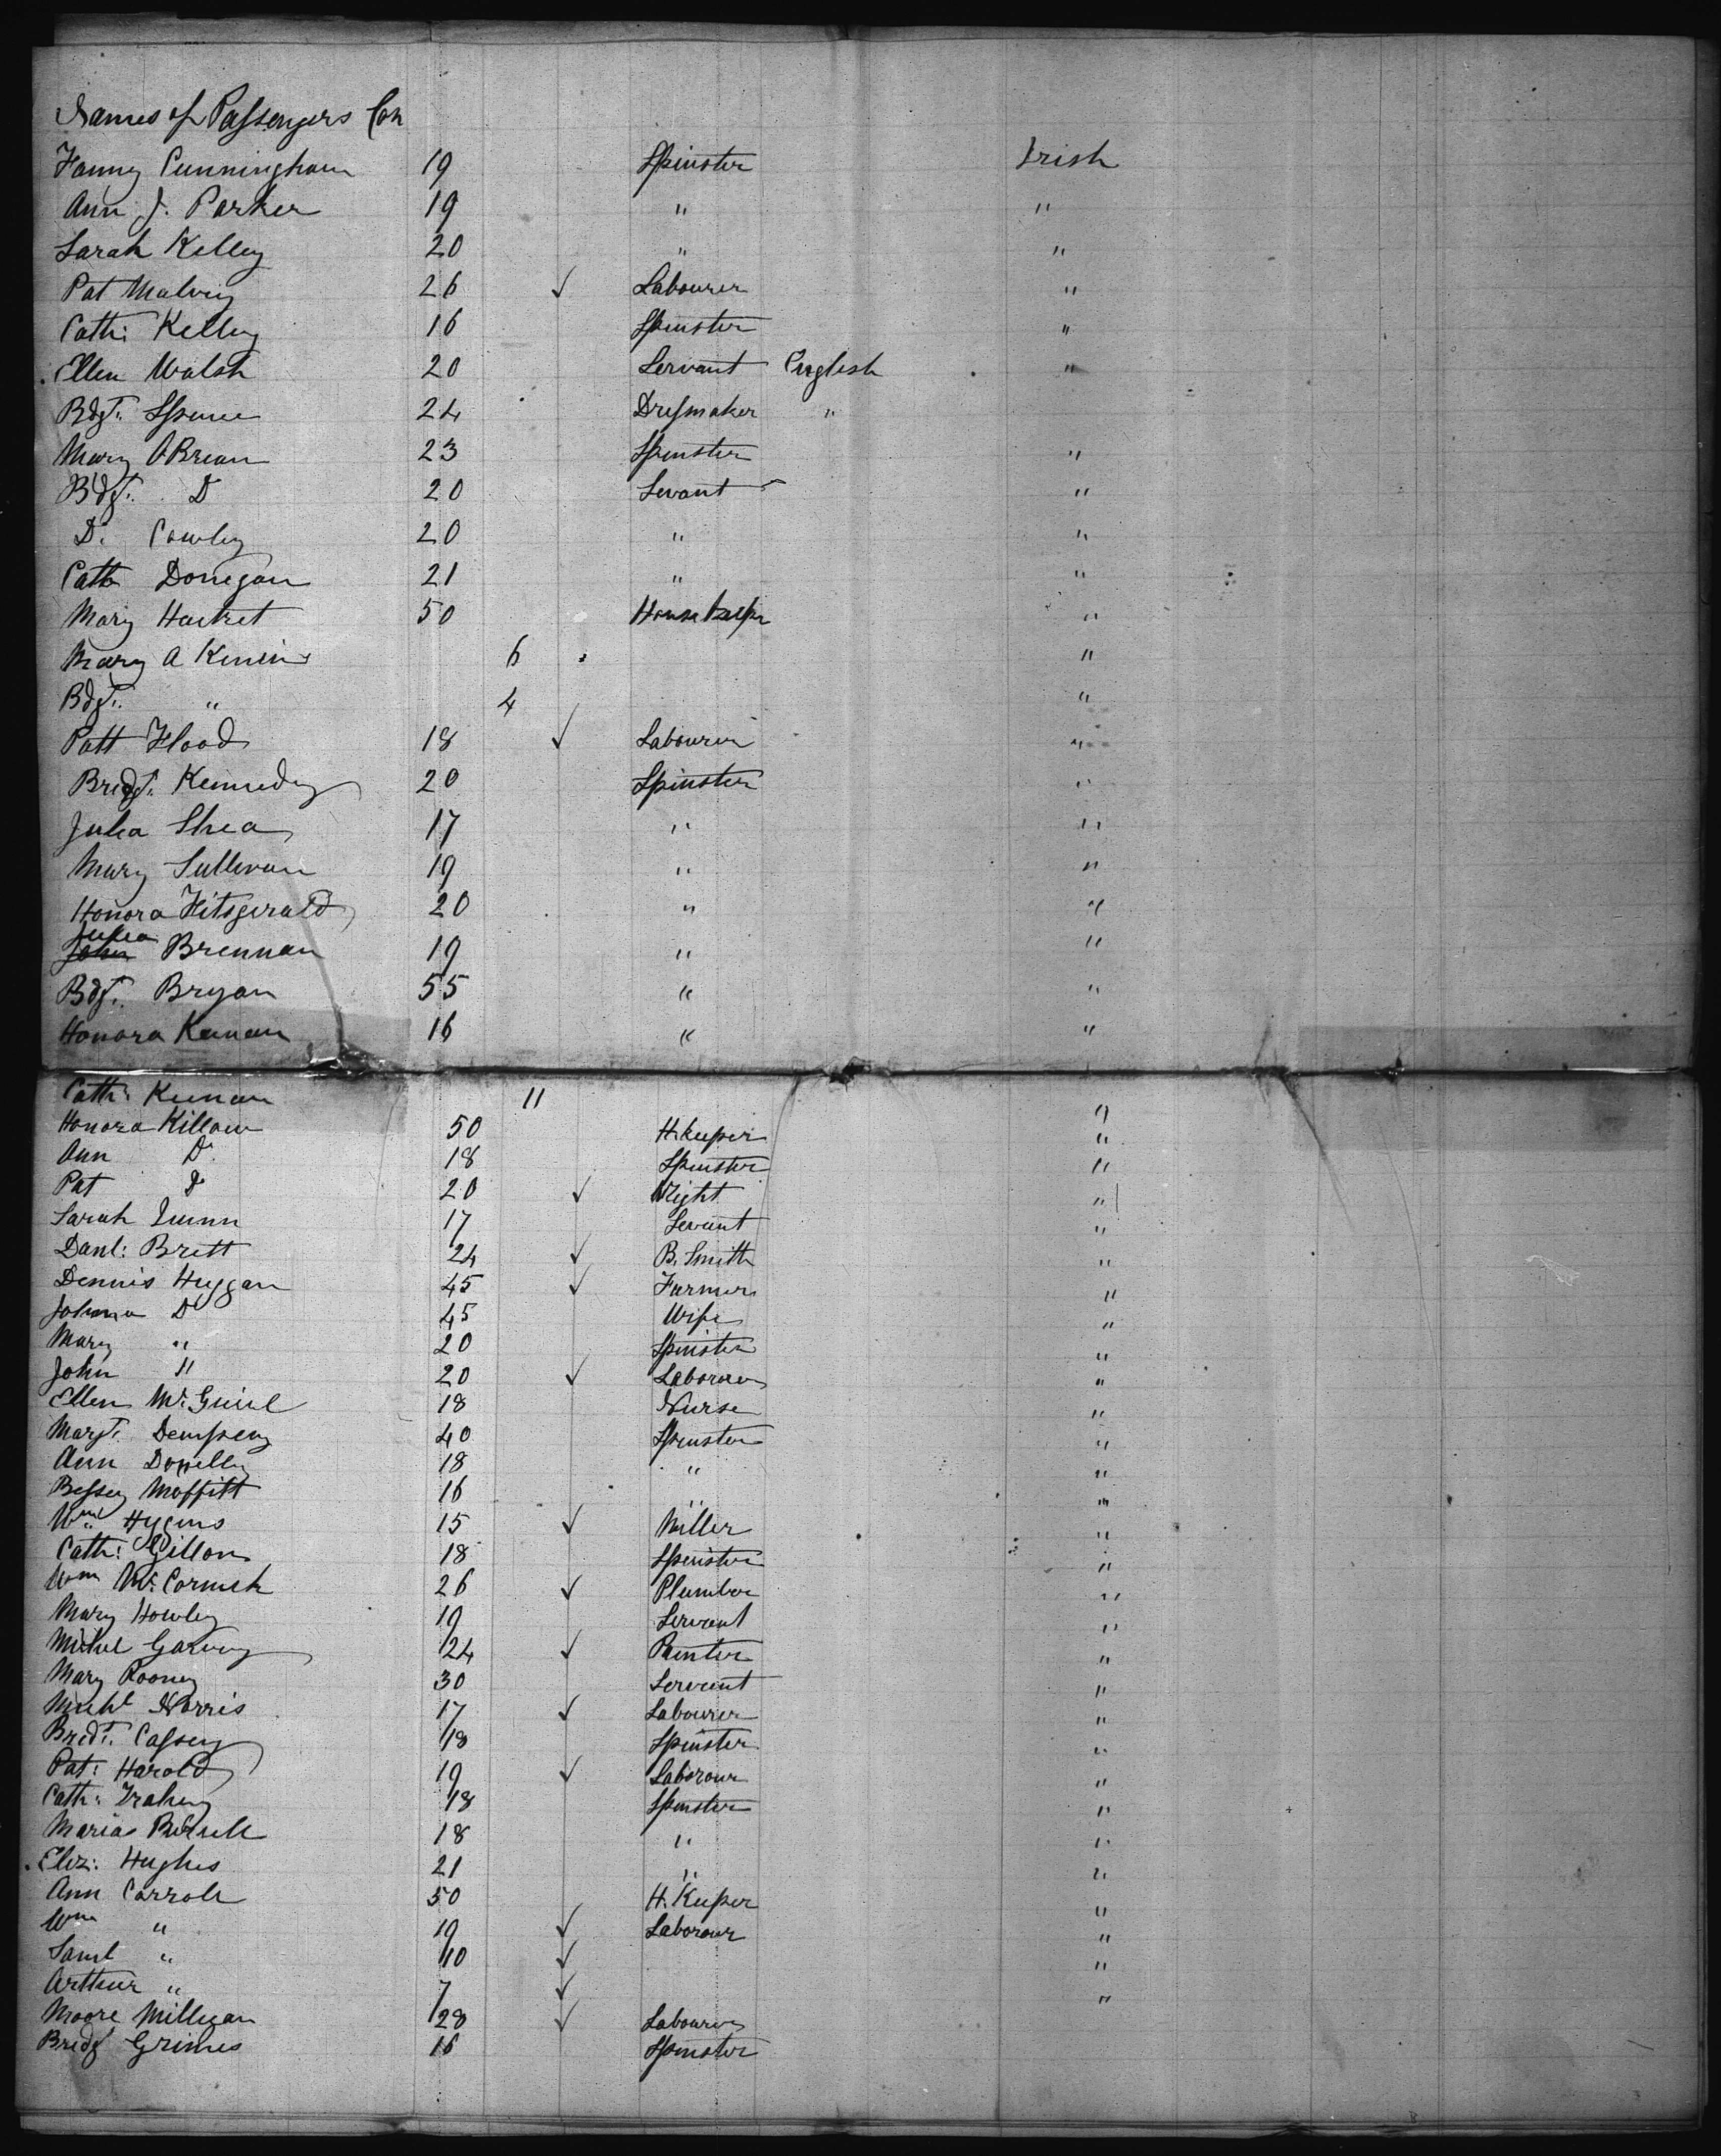 Names of Passengers Con
Fanny Cunningham 19 Spinster Irish
Ann J. Parker 19 " "
Sarah Kelley 20 " "
Pat Malvey 26 ✓ Labourer "
Cath: Kelley 16 Spinster "
Ellen Walsh 20 Servant English "
Bdgt. Spence 24 Dressmaker "
Mary OBrean 23 Spinster "
Bdgt. Do 20 Servant "
Do. Cowley 20 " "
Cath Donegan 21 " "
Mary 50 House Keeper "
Mary A 6 "
Bdgt. " 4 "
Patt Flood 18 ✓ Labourer "
Bridgt. Kennedy 20 Spinster "
Julia Shea 17 " "
Mary Sullivan 19 " "
Honora Fitsgerald 20 " "
Julia
John Brennan 19 " "
Bdgt. Bryan 55 " "
Honora Keenan 16 " "
Cath: Keenan 11 "
Honora Killow 50 H. Keeper "
Ann Do 18 Spinster "
Pat Do 20 ✓ Wright "
Sarah Quinn 17 Servant "
Danl: Brett 24 ✓ B. Smith "
Dennis Huggan 45 ✓ Farmer "
Johnna Do 45 Wife "
Mary " 20 Spinster "
John " 20 ✓ Laborour "
Ellen 18 Nurse "
Margt. Dempsey 40 Spinster "
Ann Donelly 18 " "
Bessey Moffitt 16 " "
Wm. Hygens 15 ✓ Miller "
Cath: Gillon 18 Spinster "
Wm McCormick 26 ✓ Plumber "
Mary Howley 19 Servant "
Michl Garvey 24 ✓ Painter "
Mary Rooney 30 Servant "
Michl Norris 17 ✓ Labourer "
Bridt. Cassey 18 Spinster "
Pat: Harold 19 ✓ Laborour "
Cath: 18 Spinster "
Maria 18 " "
Eliz: Hughes 21 " "
Ann Carroll 50 H. Keeper "
Wm " 19 ✓ Laborour "
Saml " 10 ✓ "
Arthur " 7 ✓ "
Moore Milligan 28 ✓ Labourer
Bridgt Grimes 16 Spinster